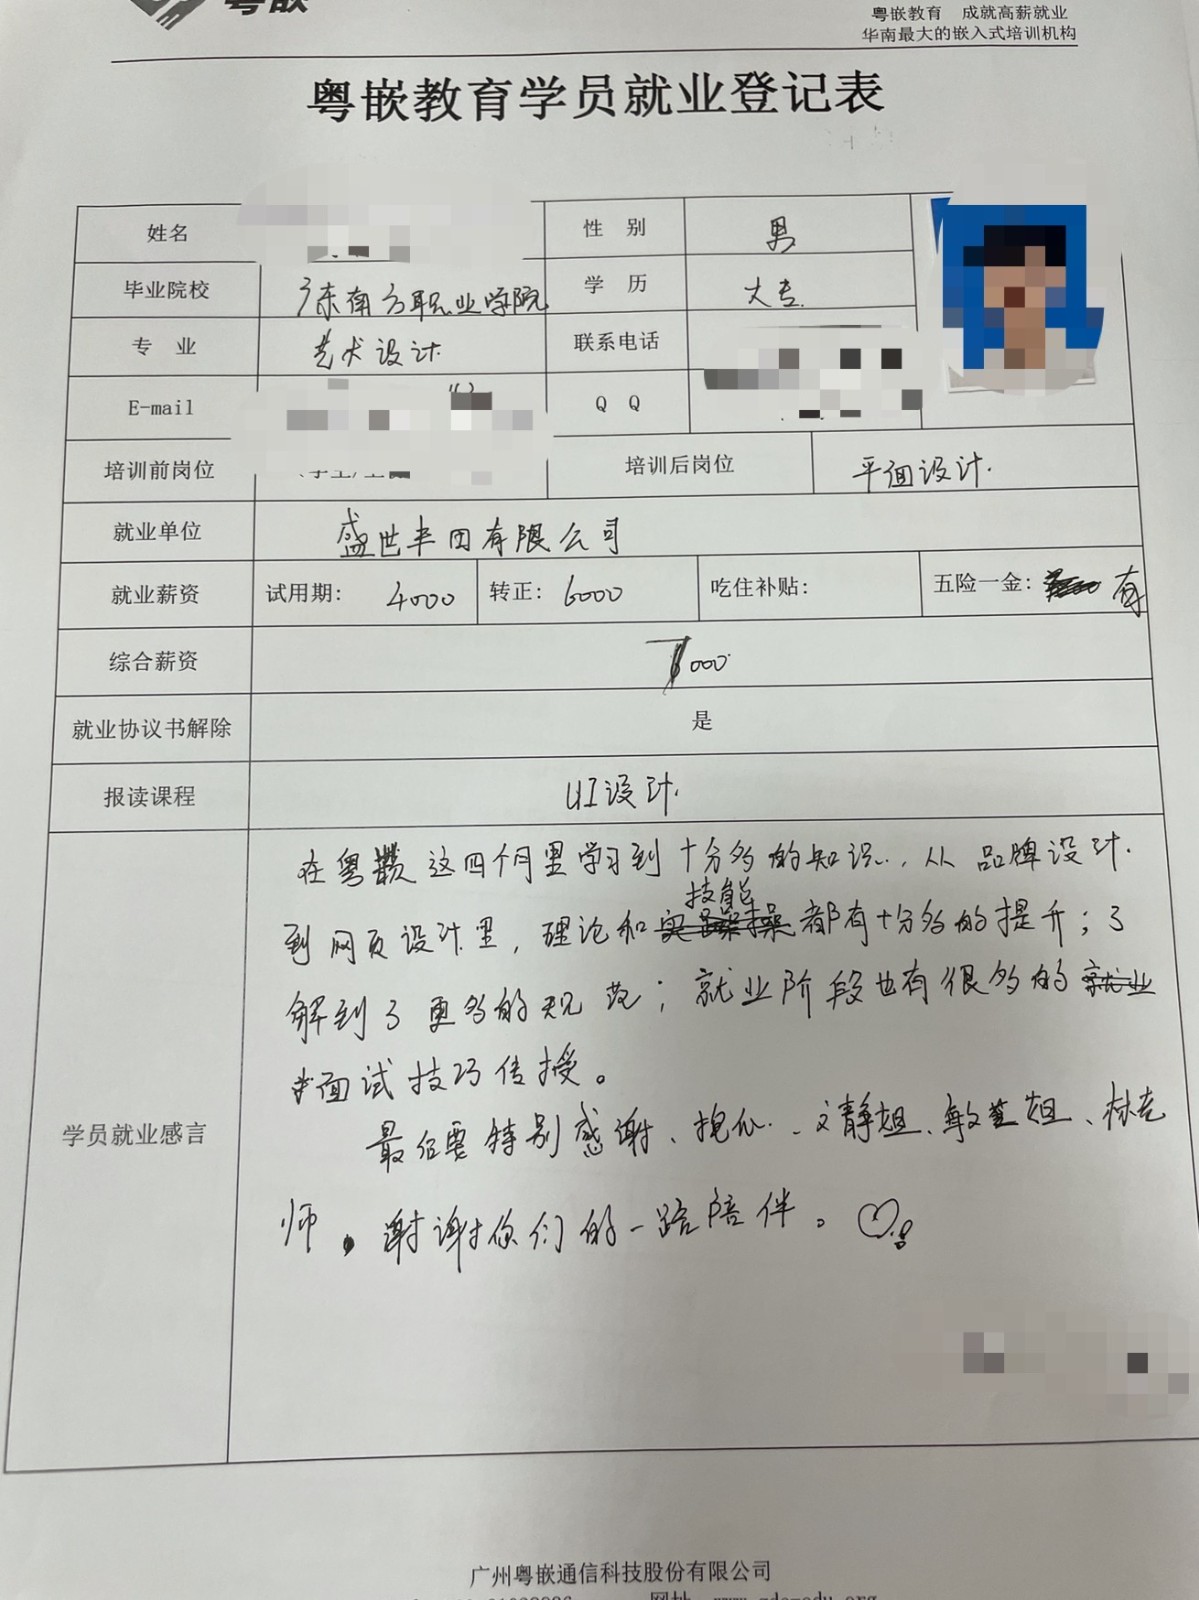 粤嵌
粤嵌教育 成就高薪就业
华南最大的嵌入式培训机构
粤嵌教育学员就业登记表
姓名 性 别 男
毕业院校 广东南方职业学院 学 历 大专
专 业 艺术设计 联系电话
E-mail Q Q
培训前岗位 培训后岗位 平面设计
就业单位 盛世丰田有限公司
就业薪资 试用期: 4000 转正: 6000 吃住补贴: 五险一金: 有
综合薪资 7000
就业协议书解除 是
报读课程 UI设计
在粤嵌这四个月里学习到十分多的知识,从品牌设计
到网页设计里,理论和技能都有十分多的提升;了
解到了更多的规范;就业阶段也有很多的
面试技巧传授。
学员就业感言
最后要特别感谢、 、文静姐、敏 姐、林老
师。谢谢你们的一路陪伴。
广州粤嵌通信科技股份有限公司